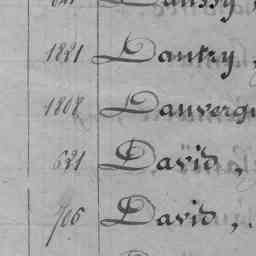 1821 Dautry,
1808 Dauverg
621 David,
706 David,